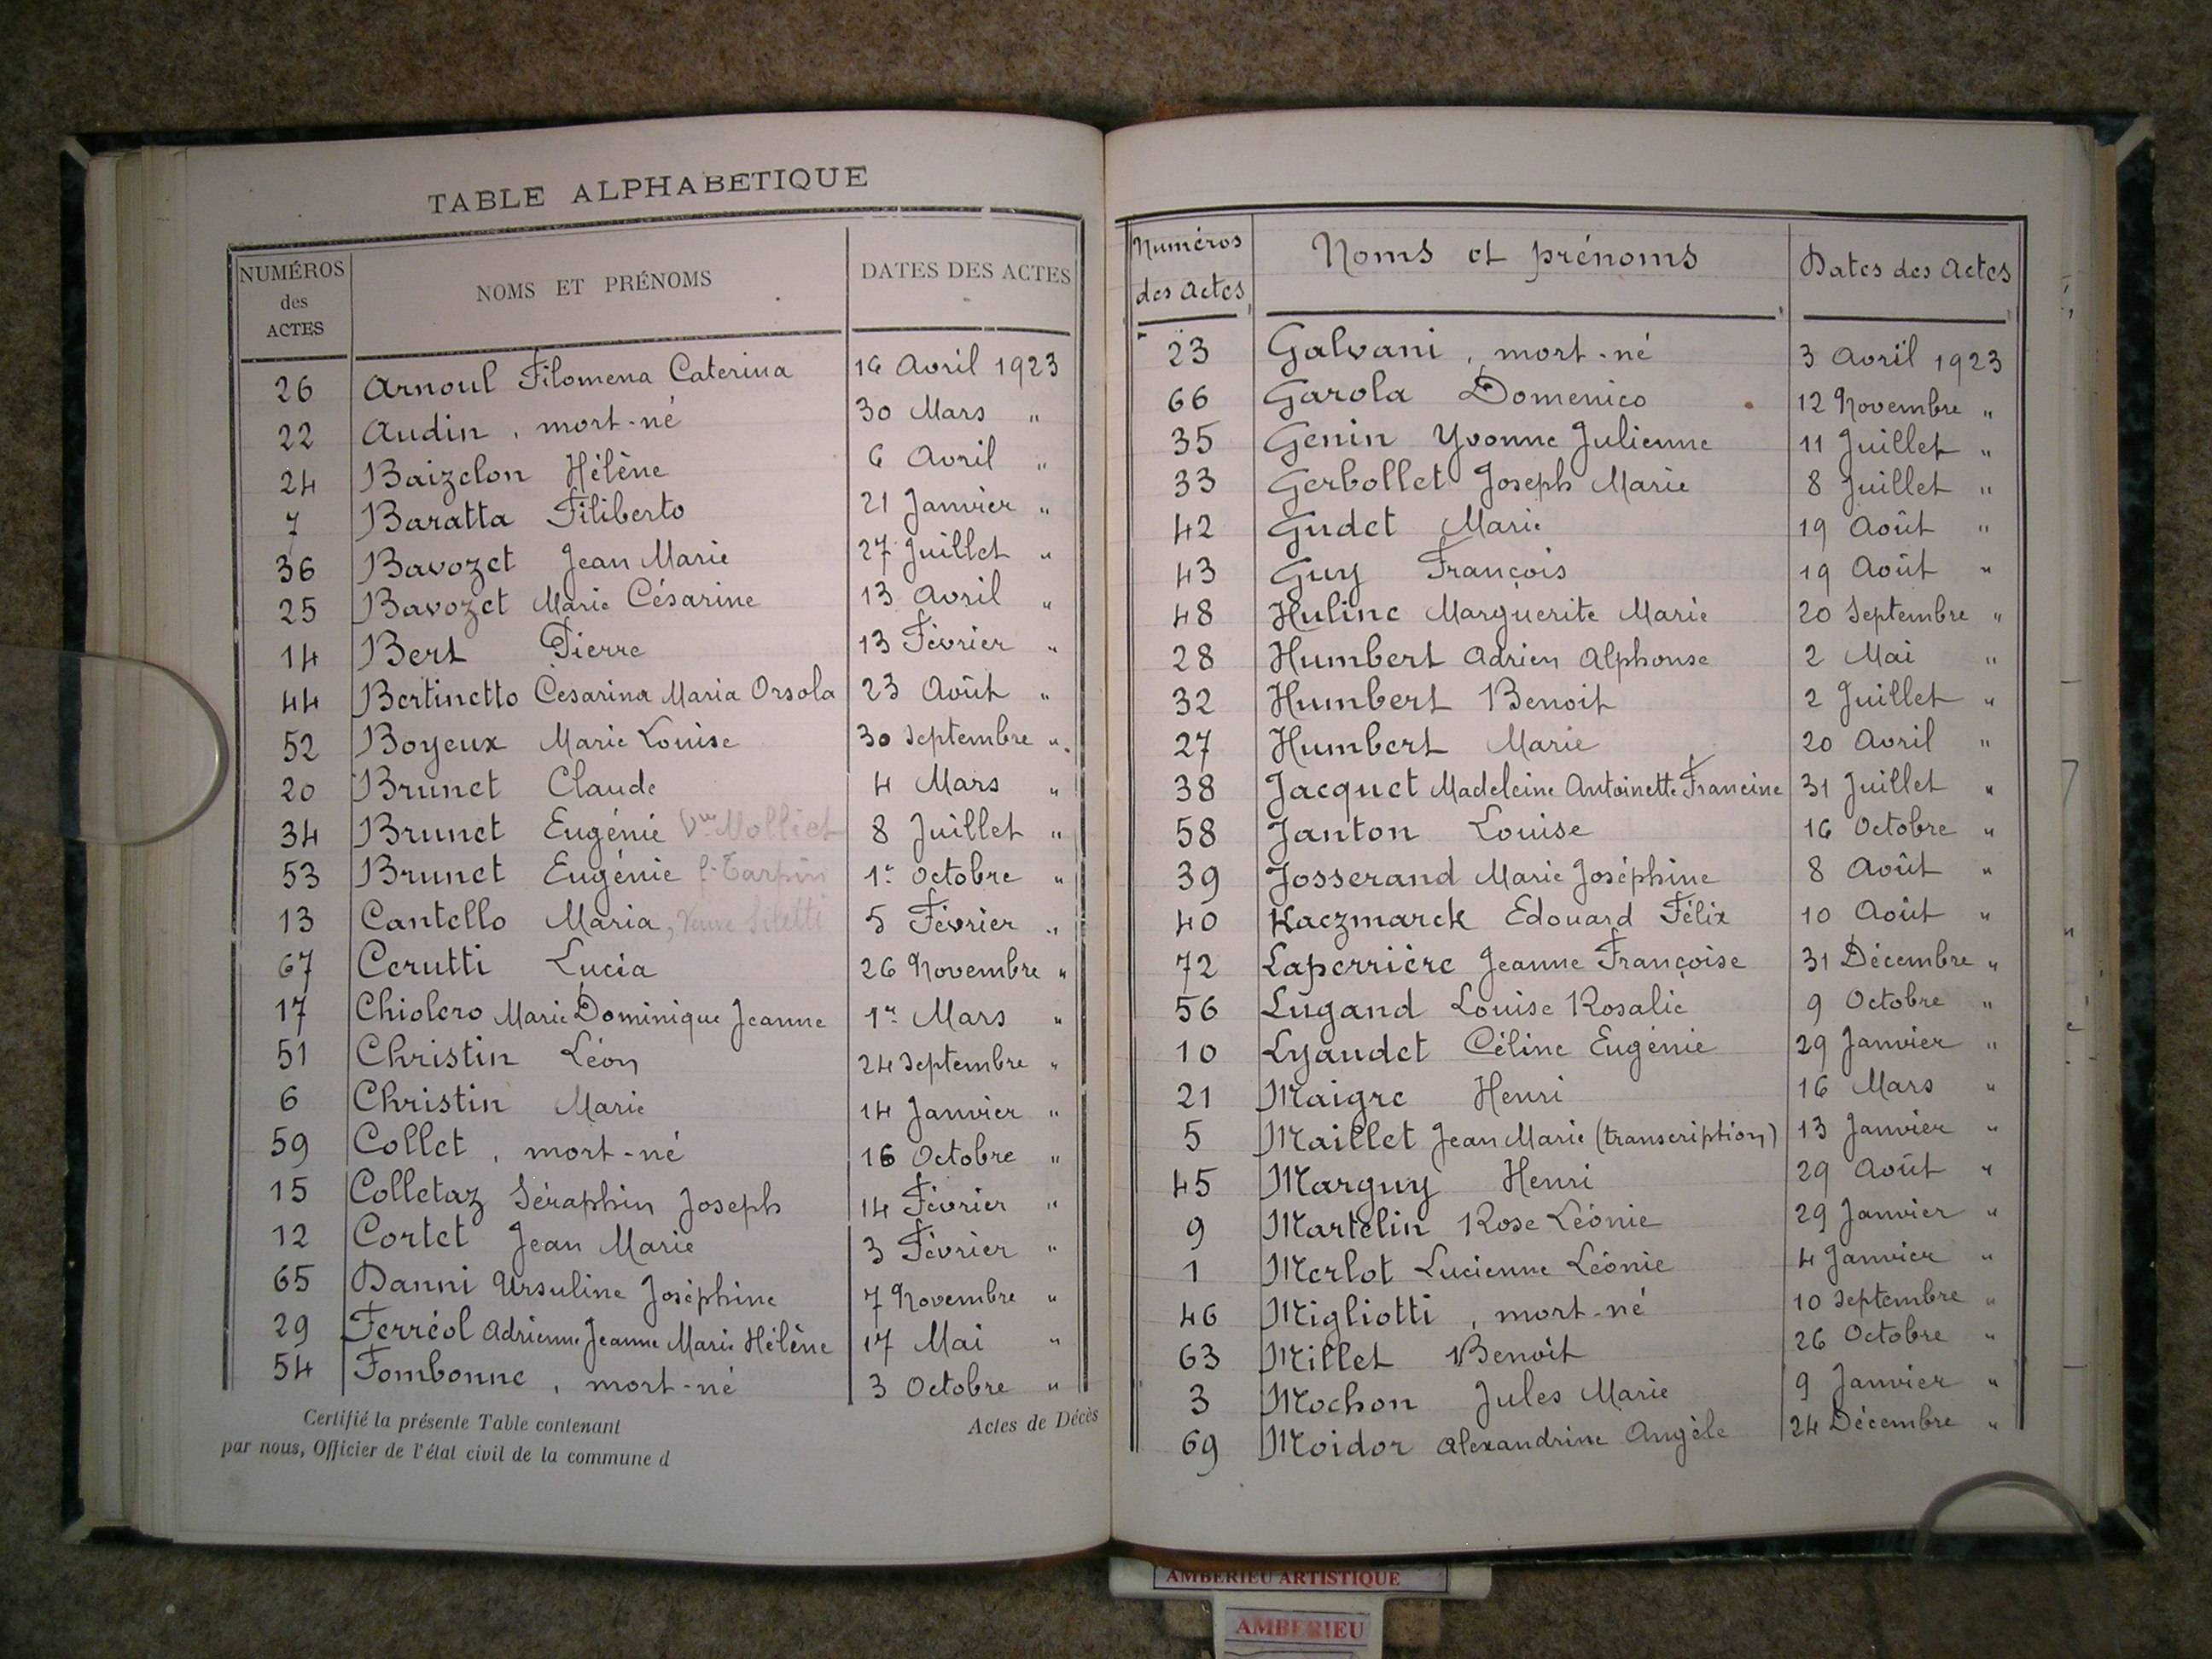 TABLE ALPHABETIQUE
NUMÉROS des ACTES NOMS ET PRÉNOMS DATES DES ACTES
26 Arnoul Filomena Caterina 16 Avril 1923
22 Audin, mort-né 30 Mars "
24 Baizelon Hélène 6 Avril "
7 Baratta Filiberto 21 Janvier "
36 Bavozet Jean Marie 27 Juillet "
25 Bavozet Marie Césarine 13 Avril "
14 Bert Pierre 13 Février "
44 Bertinetto Cesarina Maria Orsola 23 Août "
52 Boyeux Marie Louise 30 Septembre "
20 Brunet Claude 4 Mars "
34 Brunet Eugénie Vve Molliet 8 Juillet "
53 Brunet Eugénie f. Tarpin 1er Octobre "
13 Cantello Maria, Veuve 5 Février "
67 Cerutti Lucia 26 Novembre "
17 Chiolero Marie Dominique Jeanne 1er Mars "
51 Christin Léon 24 Septembre "
6 Christin Marie 14 Janvier "
59 Collet, mort-né 16 Octobre "
15 Colletaz Séraphin Joseph 14 Février "
12 Cortet Jean Marie 3 Février "
65 Danni Ursuline Joséphine 7 Novembre "
29 Ferréol Adrienne Jeanne Marie Hélène 17 Mai "
54 Fombonne, mort-né 3 Octobre "
Certifié la présente Table contenant Actes de Décès
par nous, Officier de l'état civil de la commune d
Numéros des Actes Noms et prénoms Dates des Actes
23 Galvani, mort-né 3 Avril 1923
66 Garola Domenico 12 Novembre "
35 Genin Yvonne Julienne 11 Juillet "
33 Gerbollet Joseph Marie 8 Juillet "
42 Gudet Marie 19 Août "
43 Guy François 19 Août "
48 Huline Marguerite Marie 20 Septembre "
28 Humbert Adrien Alphonse 2 Mai "
32 Humbert Benoit 2 Juillet "
27 Humbert Marie 20 Avril "
38 Jacquet Madeleine Antoinette Francine 31 Juillet "
58 Janton Louise 16 Octobre "
39 Josserand Marie Joséphine 8 Août "
40 Kaczmarek Edouard Félix 10 Août "
72 Laperrière Jeanne Françoise 31 Décembre "
56 Lugand Louise Rosalie 9 Octobre "
10 Lyaudet Céline Eugénie 29 Janvier "
21 Maigre Henri 16 Mars "
5 Maillet Jean Marie (transcription) 13 Janvier "
45 Marguy Henri 29 Août "
9 Martelin Rose Léonie 29 Janvier "
1 Merlot Lucienne Léonie 4 Janvier "
46 Migliotti, mort-né 10 Septembre "
63 Millet Benoît 26 Octobre "
3 Mochon Jules Marie 9 Janvier "
69 Moidor Alexandrine Angèle 24 Décembre "
AMBERIEU ARTISTIQUE
AMBERIEU